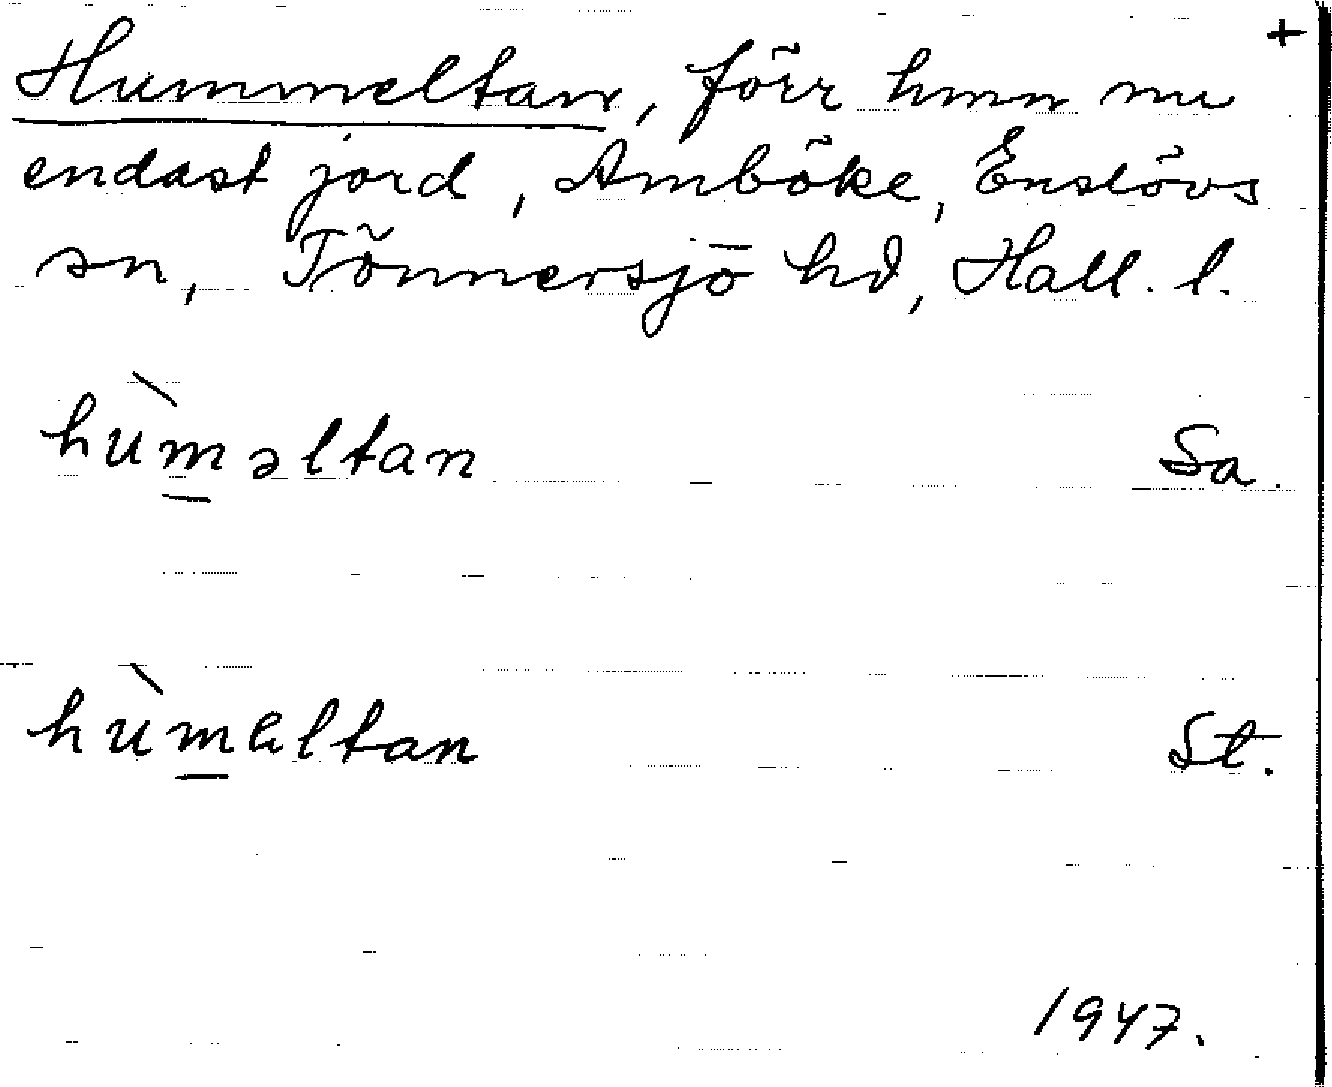 +
Hummeltan, förr hmn nu
endast jord, Amböke, Enslövs
sn, Tönnersjö hd, Hall. l.
hùm̲əltan Sa.
hùm̲eltan St.
1947.